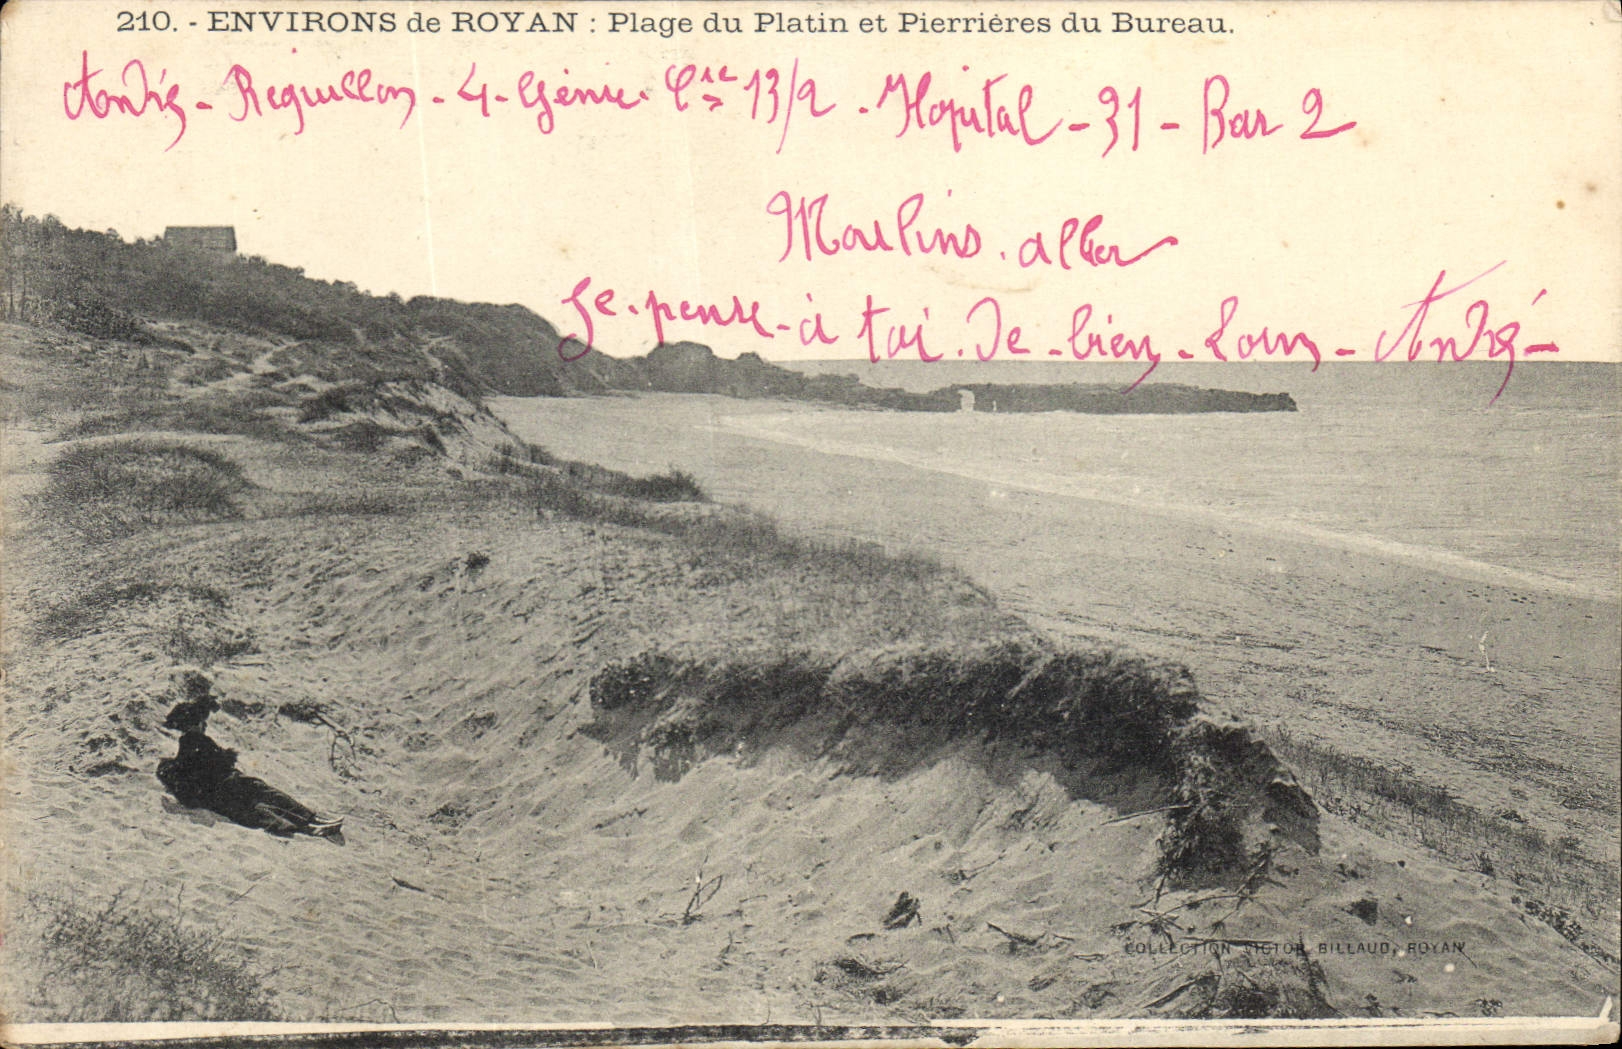 210. - ENVIRONS de ROYAN : Plage du Platin et Pierrières du Bureau.
André - Reguillon - 4 - Génie. Cie 13/2 - Hopital - 31 - Bar 2
Moulins. allier
Je. pense - à toi. De - bien - Loin - André -
COLLECTION VICTOR BILLAUD, ROYAN